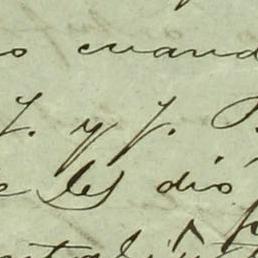 o cuand
J. y J. P.
e les dió